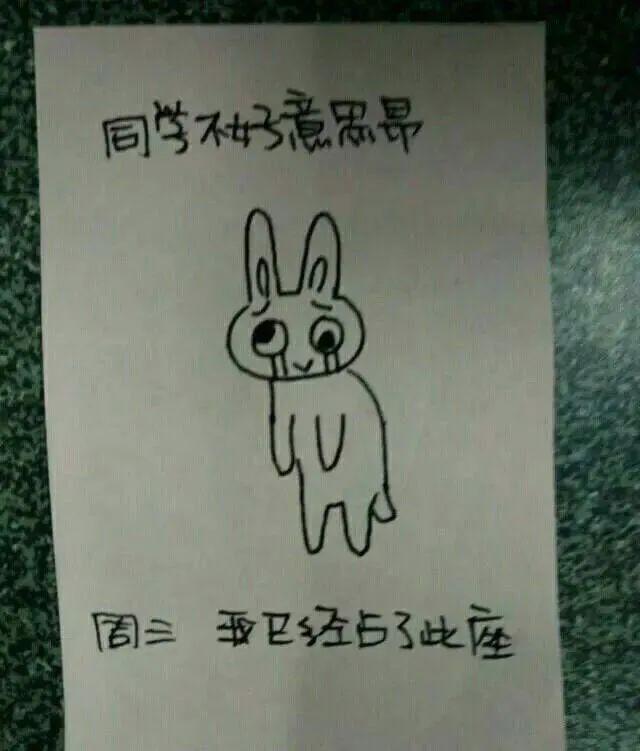 同学不好意思昂
周三 我已经占了此座